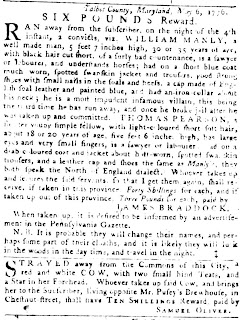 Talbot County, Maryland,
SIX POUNDS Reward.
RAN away from the subscriber, on the night of the 4th
instant, a convict, viz. WILLIAM MANLY, a
well made man, 5 feet 7 inches high, 30 or 35 years of age,
with black hair cut short, of a countenance, is a sawyer
or labourer, and understands horses; had on a short blue coat
much worn, spotted trowsers, good
shoes with small nails in the soals and heels, a cap made of
seal leather and painted blue, and had an iron collar about
his neck; he is a most impudent infamous villain, this being
the third time he has run away, and once he broke gaol after he
was taken up and committed. THOMAS PEARSON, a
simple fellow, with light coloured short hair,
about 18 or 20 years of age, five feet 6 inches high, has large
and very small fingers, is a sawyer or labourer, had on a
drab coloured coat and jacket about half worn, spotted
trousers, and a leather cap and shoes the same as Manly's; they
both speak the North of England dialect. Whoever takes up
and secures the said servants, so that I get them again, shall
receive, if taken in this province, Forty Shillings for each, and if
taken up out of this province, Three Pounds for each, paid by
JAMES BRADDOCK.
When taken up, it is desired to be informed by an advertisement
in the Pennsylvania Gazette.
N. B. It is probable they will change their names, and perhaps
some part of their cloaths, and it is likely they will lie
in the woods in the day time, and travel in the night.
STRAYED away from the Commons of this City, a
red and white COW, with two small hind Teats, and
a Star in her Forehead. Whoever takes up said Cow, and brings
her to the Subscriber, living opposite Mr. Pusey's Brewhouse, in
Chestnut street, shall have TEN SHILLINGS Reward, paid by
SAMUEL OLIVER.